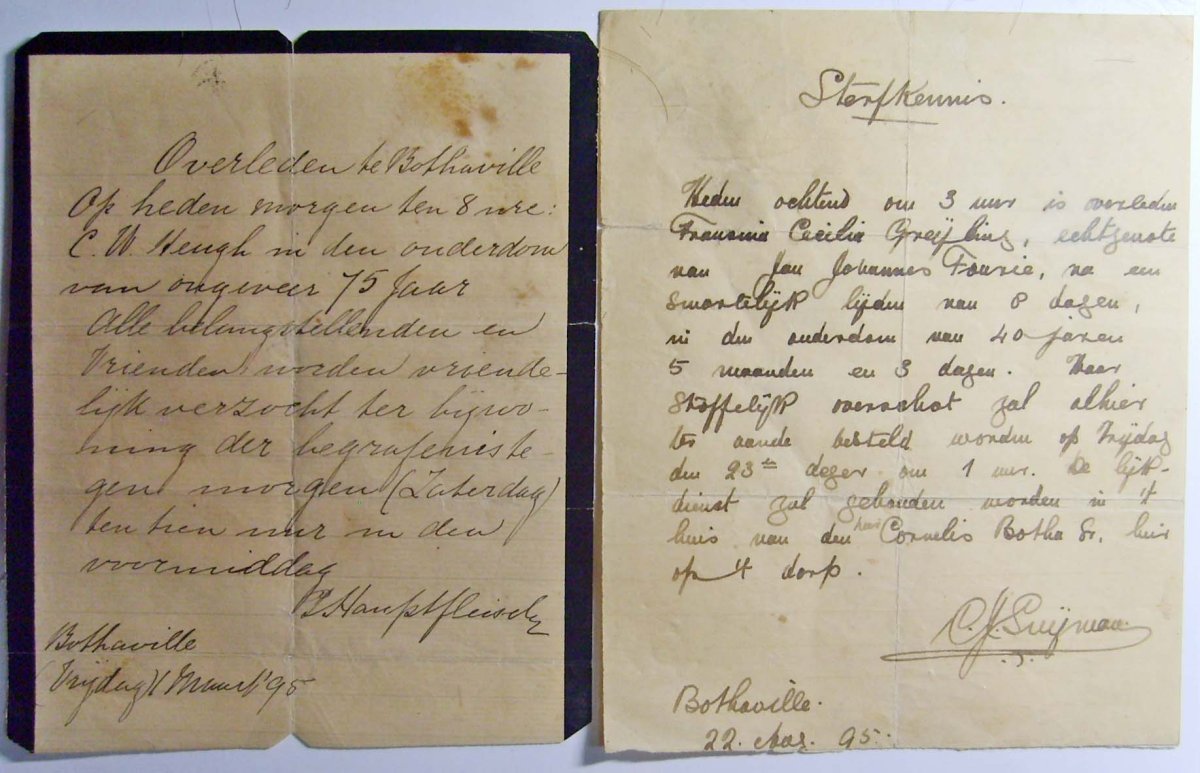 Overleden te Bothaville
Op heden morgen ten 8 ure:
C. W. Heugh in den ouderdom
van ongeveer 75 Jaar
Alle belangstellenden en
Vrienden worden vriende-
lijk verzocht ter bijwo-
ning der begrafenis te-
gen morgen (Zaterdag)
ten tien uur in den
voormiddag
Hauptfleisch
Bothaville
Vrijdag 1 Maart '95
Sterfkennis.
Heden ochtend om 3 uur is overleden
Fransina Cecilia Greijling, echtgenote
van Jan Johannes Fourie, na een
smartelijk lijden van 8 dagen,
in den ouderdom van 40 jaren
5 maanden en 3 dagen. Haar
Stoffelijk overschot zal alhier
ter aarde besteld worden op Vrijdag
den 23ten dezer om 1 uur. De lijk-
dienst zal gehouden worden in 't
huis van den heer Cornelis Botha Sr. hier
op 't dorp.
Bothaville.
22. 95.